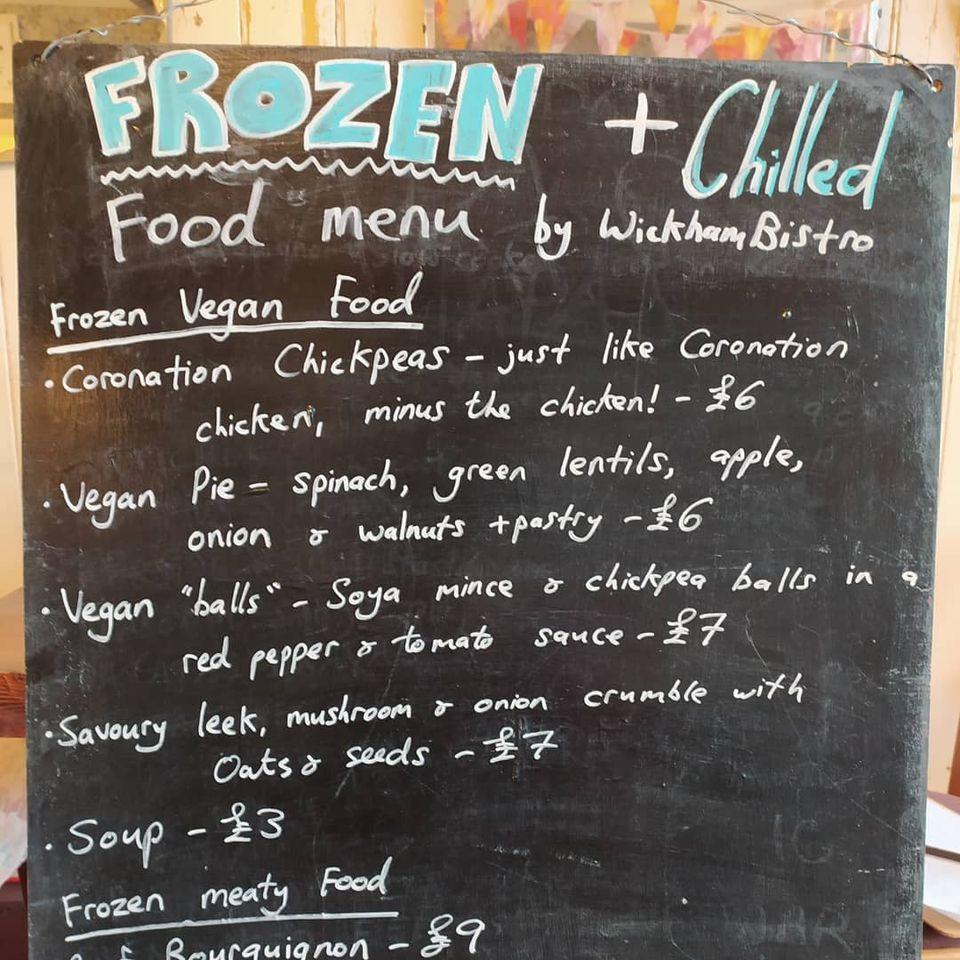 FROZEN + Chilled
Food menu by Wickham Bistro
Frozen Vegan Food
• Coronation Chickpeas - just like Coronation
chicken, minus the chicken! - £6
• Vegan Pie - spinach, green lentils, apple,
onion & walnuts + pastry - £6
• Vegan "balls" - Soya mince & chickpea balls in a
red pepper & tomato sauce - £7
• Savoury leek, mushroom & onion crumble with
Oats & seeds - £7
• Soup - £3
Frozen meaty Food
Bourguignon - £9